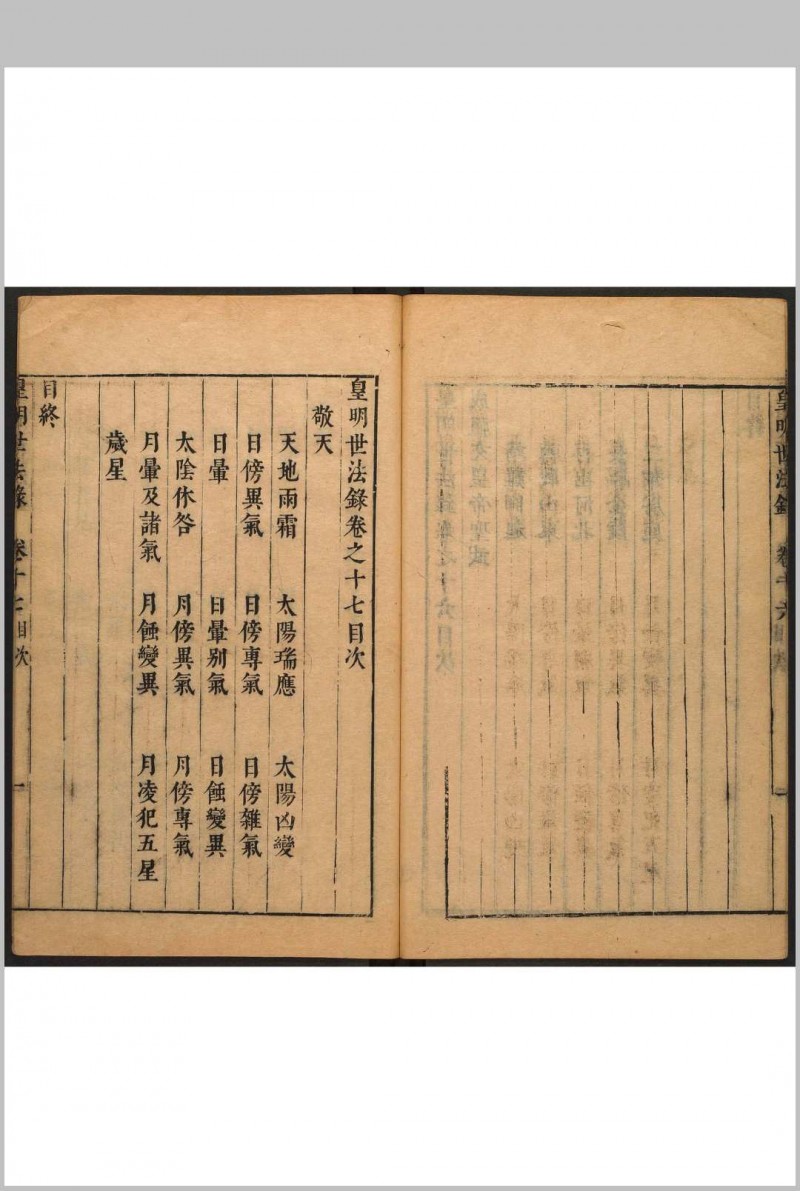 皇明世法錄 卷十六目次
皇明世法錄卷之十七目次
敬天
天地雨霜 太陽瑞應 太陽凶變
日傍異氣 日傍專氣 日傍雜氣
日暈 日暈别氣 日蝕變異
太陰休咎 月傍異氣 月傍專氣
月暈及諸氣 月蝕變異 月凌犯五星
歲星
目終
皇明世法錄 卷十七目次 一